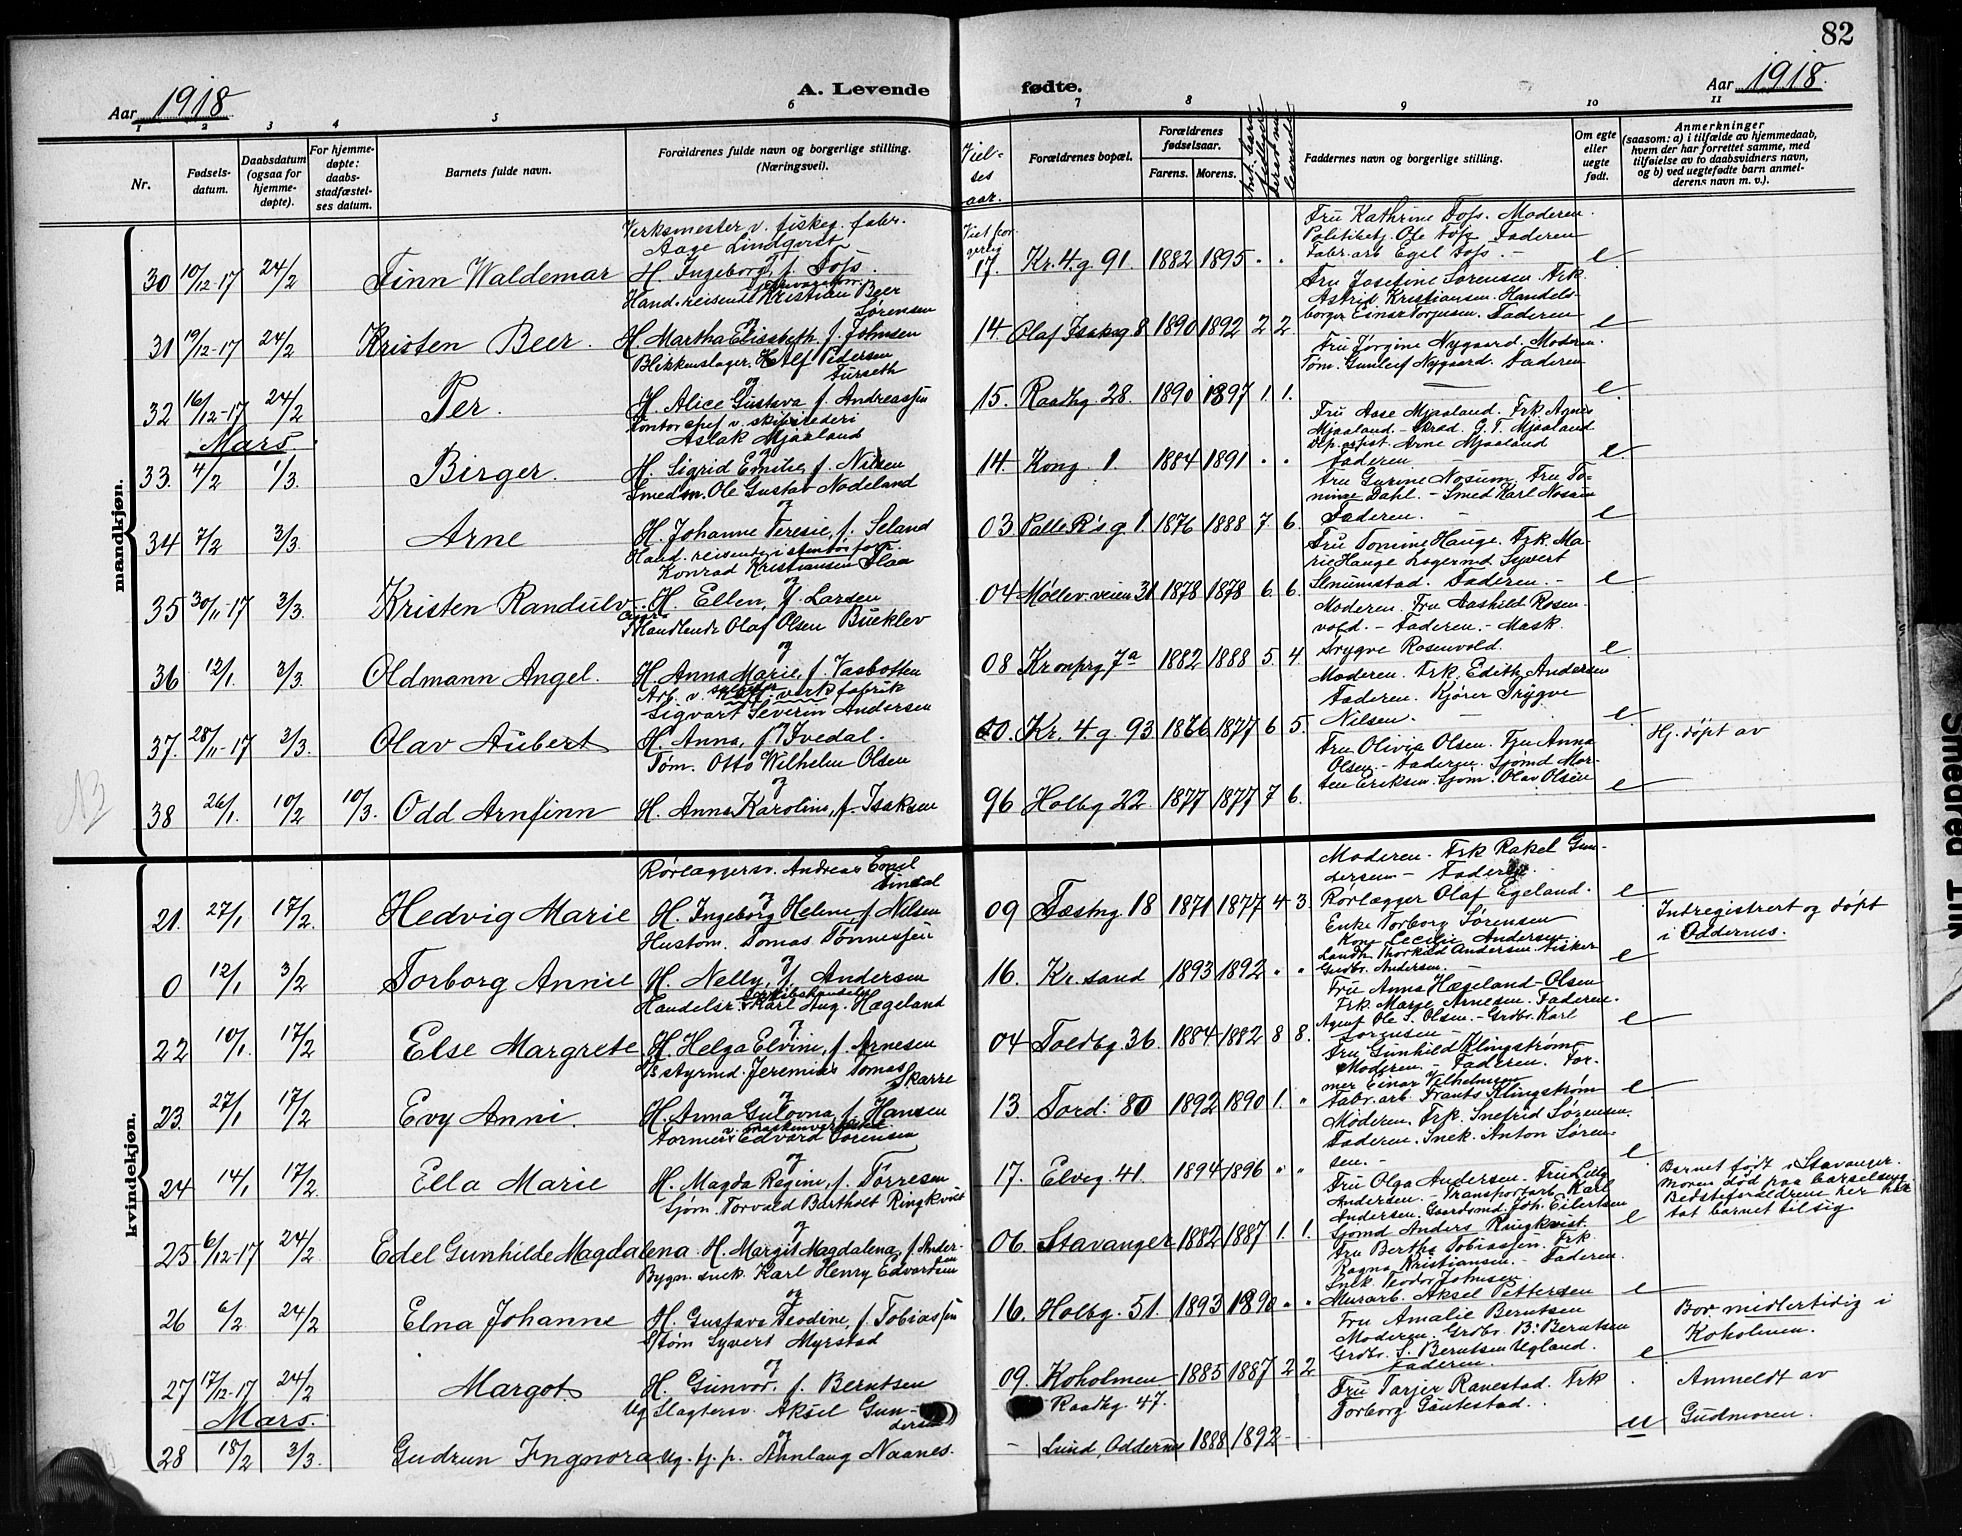 82
Aar 1918
A. Levende
fødte.
Aar 1918.
1 2 3 4 5 6 7 8 9 10 11
Nr.
Fødsels-
datum.
Daabsdatum
(ogsaa for
hjemme-
døpte).
For hjemme-
døpte:
daabs-
stadfæstel-
ses datum.
Barnets fulde navn.
Forældrenes fulde navn og borgerlige stilling.
(Næringsvei).
Viel-
ses
aar.
Forældrenes bopæl.
Forældrenes
fødselsaar.
Farens. Morens.
Faddernes navn og borgerlige stilling.
Om egte
eller
uegte
født.
Anmerkninger
(saasom: a) i tilfælde av hjemmedaab,
hvem der har forrettet samme, med
tilføielse av to daabsvidners navn,
og b) ved uegtefødte barn anmel-
derens navn m. v.).
mandkjøn.
Verksmester v. fiskeg. fabr.
Aage Lindqvist
30 10/12-17 24/2 Finn Waldemar H. Ingeborg, f. Foss.
17. Kr. 4. g. 91. 1882 1895 . .
Fru Kathrine Foss. Moderen.
Politibetj. Ole Foss Faderen
Fabr. arb. Egel Foss. -
e
Hand. reisende Kristian Beer
Sørensen
og
31 19/12-17 24/2 Kristen Beer. H. Martha Elisabeth, f. Johnsen
14. Olaf Isakg 8. 1890 1892 2 2
Fru Josefine Sørensen. Frk.
Astrid Kristiansen. Handels-
borger Einar Torjusen. Faderen
e
Blikkenslager. H. Alf Pedersen
Furseth
og
32 16/12-17 24/2 Per. H. Alice Gustava f. Andreassen
15. Raadhg 28. 1890 1897 1. 1.
Fru Jørgine Nygaard. Moderen.
Tøm. Gunleif Nygaard. Faderen
e
Mars.
Kontorchef v. skibsrederi
Aslak Mjaaland
og
33. 4/2 1/3. Birger. H. Sigrid Emilie, f. Nilsen
14 Kong. 1 1884 1891 . .
Fru Aase Mjaaland. Frk Agnes
Mjaaland - Skræd. G. T. Mjaaland
Arne Mjaaland
Faderen
e
Smedm. Ole Gustav Nodeland
og
34 7/2 3/3. Arne H. Johanne Teresie, f. Seland
03 Palle R's g. 1. 1876 1888 7. 6.
Fru Gurine Nosum. Fru To-
mine Dahl. - Smed Karl Nosum
Faderen. -
e
Hand. reisende i
Konrad Kristiansen Flaa
og
35 30/11-17 3/3. Kristen Randulv. H. Ellen, f. Larsen
04 Møllev. veien 31 1878 1878 6. 6.
Fru Tomine Hauge. Frk. Ma-
rie Hauge Lagermd Syvert
Slnumstad. Faderen. -
e
Handlende Olaf Olsen Bueklev
og
36 12/1. 3/3. Oldmann Angel. H. Anna Marie, f. Vasbotten
08 Kronprg 7a 1882 1888 5. 4.
Moderen. Fru Aashild Rosen-
vold. - Faderen. - Mask.
Trygve Rosenvold.
e
Arb. v. fabrik
Sigvart Severin Andersen
37. 28/11-17 3/3. Olav Aubert H. Anna, f. Ivedal.
00. Kr. 4. g. 93 1876 1877 6 5.
Moderen. Frk. Edith Andersen
Faderen. Kjører Trygve
Nilsen. -
e
Hj. døpt av
Tøm. Otto Wilhelm Olsen
og
38 26/1. 10/2 10/3. Odd Arnfinn H. Anna Karoline, f. Isaksen
96 Holbg 22. 1877 1877 7 6.
Fru Olivia Olsen. Fru Anna
Olsen. - Faderen. Sjømd Mor-
ten Eriksen. Sjøm. Olav Olsen
e
kvindekjøn.
Rørlæggersv. Andreas Emil
Eindal
og
21. 27/1 17/2. Hedvig Marie H. Ingeborg Helene f. Nilsen
09 Fæstng 18 1871 1877 4 3.
Moderen. Frk Rakel Gun-
dersen - Faderen.
Rørlægger Olaf Egeland.
e
Hustøm. Tomas Tønnessen
og
0 12/1 3/2 Torborg Annie H. Nelly, f. Andersen
16. Kr. sand 1893 1892 " "
Enke Torborg Sørensen
Kone Cecilie Andersen.
Landh. Thorkild Andersen. Fisker
Grdbr. Andersen.
e
Indregistrert og døpt
i Oddernes.
Handelsr. Karl Aug. Hægeland
og
22 10/1. 17/2 Else Margrete H. Helga Elvine, f. Arnesen
04 Toldbg. 36. 1884 1882 8 8.
Fru Anna Hægeland-Olsen
Frk. Marie Arnesen. Faderen.
Agent Ole S. Olsen. - Grdbr. Karl
Sørensen -
e
styrmd. Jeremias Tomas
Skarre
og
23. 27/1 17/2 Evy Anni. H. Anna Gulovna, f. Hansen
13 Tord. 80 1892 1890 1. "
Fru Gunhild Klingstrøm
Moderen. - Faderen. For-
mer Einar Wilhelmsen
Fabr. arb. Frants Klingstrøm
e
Former Edvard Sørensen
og
24 14/1 17/2. Ella Marie H. Magda Regine, f. Tørresen
17. Elveg 41. 1894 1896 " "
Moderen. Frk. Snefrid Sørensen.
Faderen. Snek. Anton Søren-
sen. -
e
Sjøm. Torvald Bartholt Ringkvist
og
25 6/12-17 24/2 Edel Gunhilde Magdalena H. Margit Magdalena, f. Ander-
sen
06. Stavanger 1882 1887 1. 1.
Fru Olga Andersen. Fru Lilly
Andersen. - Transportarb. Karl
Andersen. Gaardsmd. Joh. Eilertsen
Sjømd Anders Ringkvist.
e
Barnet født i Stavanger.
Moren død paa barselseng.
Bedsteforældrene her har
tat barnet til sig
Bygn. snek. Karl Henry Edvardsen
og
26 6/2 24/2 Elna Johanne H. Gustava Teodine, f. Tobiassen
16. Holbg. 51. 1893 1890 " "
Fru Berthe Tobiassen. Frk.
Ragna Kristiansen. - Faderen.
Snek. Teodor Johnsen
Murarb. Aksel Pettersen
e
Tøm Syvert Myrstad
og
27 17/12-17 24/2 Margot H. Gunvor, f. Berntsen
09. Koholmen 1885 1887 2 2
Fru Amalie Berntsen
Moderen. Grdbr. B. Berntsen
Grdbr. S. Berntsen Ugland.
Faderen.
e
Bor midlertidig i
Koholmen.
Mars.
Ug Slagtersv. Aksel Gun-
dersen
og
28 18/2 3/3. Gudrun Ingnora Ug. tj. p. Annlaug Naanes.
Raadhg. 47.
- Lund, Oddernes 1888 1892
Fru Tarjer Ranestad. Frk
Torborg Gautestad.
u
Anmeldt av
Gudmoren.